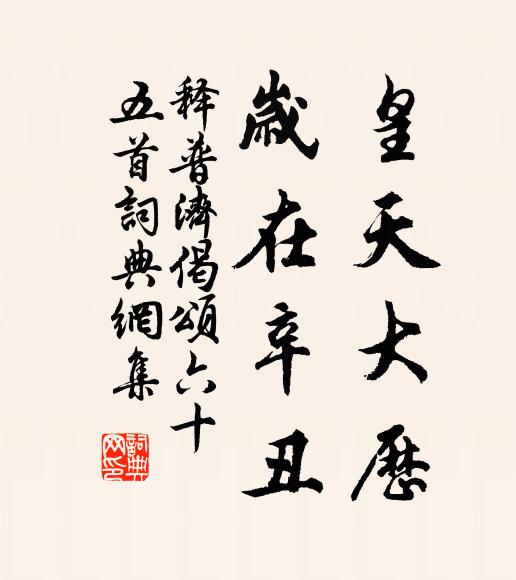 皇天大歷
歲在辛丑
释普濟偈頌六十
五首詞典網集
詞典网印